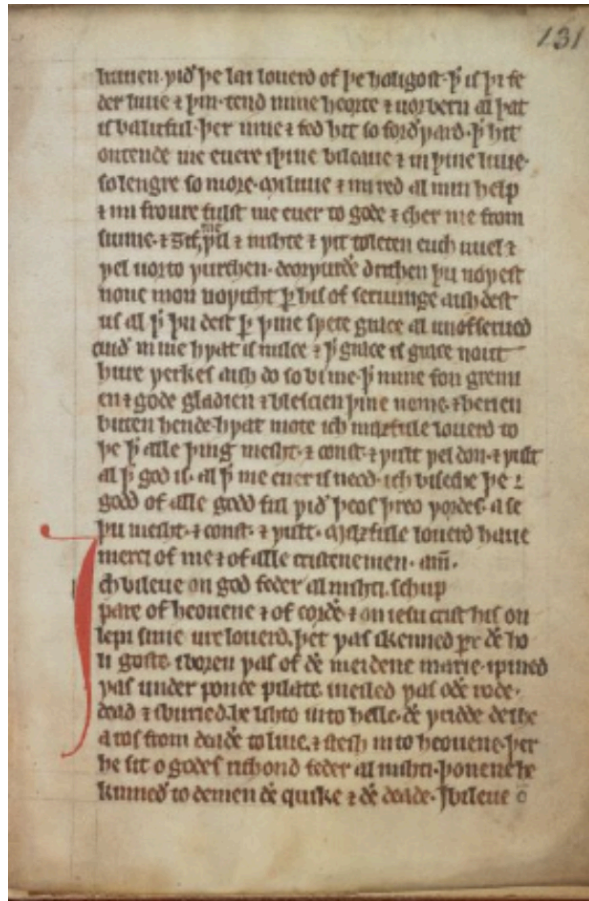 131
luuen. ƿið þe lai louerd of þe holigost. ꝥ is þi fe
der luue ⁊ þin. tend mine heorte ⁊ uorbern al þat
is baluful. þer inne ⁊ fed hit so forðƿard. ꝥ hit
ontende me euere iþine bileaue ⁊ in þine luue.
so lengre so more. Mi luue ⁊ mi red al min help
⁊ mi froure fulst me euer to gode ⁊ cher me from
sunne. ⁊ ȝif me ƿil ⁊ mihte ⁊ ƿit to leten euch uuel ⁊
ƿel uorto ƿurchen. deorƿurðe drihten þu noƿest
none mon noƿiht
us al ꝥ þu dest þine sƿete grace al unofserued
cuð in me hƿat is milce ⁊ ꝥ grace is grace nout
hure ƿerkes do so bi me. ꝥ mine fon gremi
en ⁊ gode gladien ⁊ blescien þine nome. ⁊ herien
buten hende. hƿat mote ich milzfule louerd to
þe ꝥ alle þing meiht. ⁊ const. ⁊ ƿult ƿel don. ⁊ ƿult
al ꝥ god is. al ꝥ me euer is neod. ich biseche þe
godd of alle godd ful ƿið þeos þreo ƿordes. a se
þu meiht. ⁊ const. ⁊ ƿult. Milzfule louerd haue
merci of me ⁊ of alle cristenemen. am̅.
Ich bileue on god feder almihti. schup
pare of heouene ⁊ of eorðe ⁊ on iesu crist his on
lepi sune ure louerd. þet ƿas ikenned þe ho
li goste. iboren ƿas of ðe meidene marie. ipined
ƿas under ponce pilate. ineiled ƿas oðe rode.
dead ⁊ iburied. he lihto into helle. ðe þridde dei he
aros from deaðe to liue. ⁊ steih into heouene. þer
he sit o godes richond feder almihti. þonene he
kumeð to demen ðe quike ⁊ ðe deade. Ibileue o̅